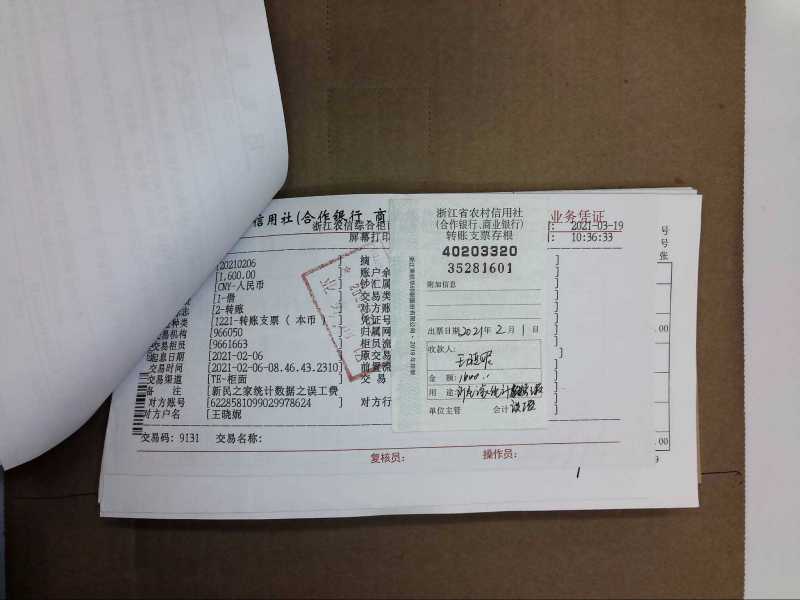 信用社(合作银行 商
业务凭证
浙江农信综合柜
2021-03-19
屏幕打印
10:36:33
[20210206
摘
[1,600.00
账户余
[CNY-人民币
钞汇属
[1-借
交易类
[2-转账
]
对方账
[1221-转账支票(本币)
]
凭证号
交易机构
[966050
]
归属网
交易柜员
[9661663
]
柜员流
信息日期
[2021-02-06
]
原交易
交易时间
[2021-02-06-08.46.43.2310]
前置流
交易渠道
[TE-柜面
]
交 易
备 注
[新民之家统计数据之误工费
]
对方账号
[6228581099029978624
]
对方行
对方户名
[王晓妮
]
交易码: 9131
交易名称:
复核员:
操作员:
浙江省农村信用社
(合作银行、商业银行)
转账支票存根
40203320
35281601
附加信息
出票日期2021年2月1日
收款人:
王晓妮
金 额:
用 途:
单位主管
会计
号
号
张
.00
.00
1